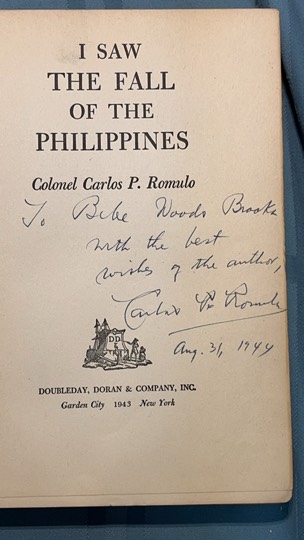 I SAW
THE FALL
OF THE
PHILIPPINES
Colonel Carlos P. Romulo
To Bebe Woods Brooks
with the best
wishes of the author,
Carlos P. Romulo
Aug. 31, 1944
DD
DOUBLEDAY, DORAN & COMPANY, INC.
Garden City 1943 New York